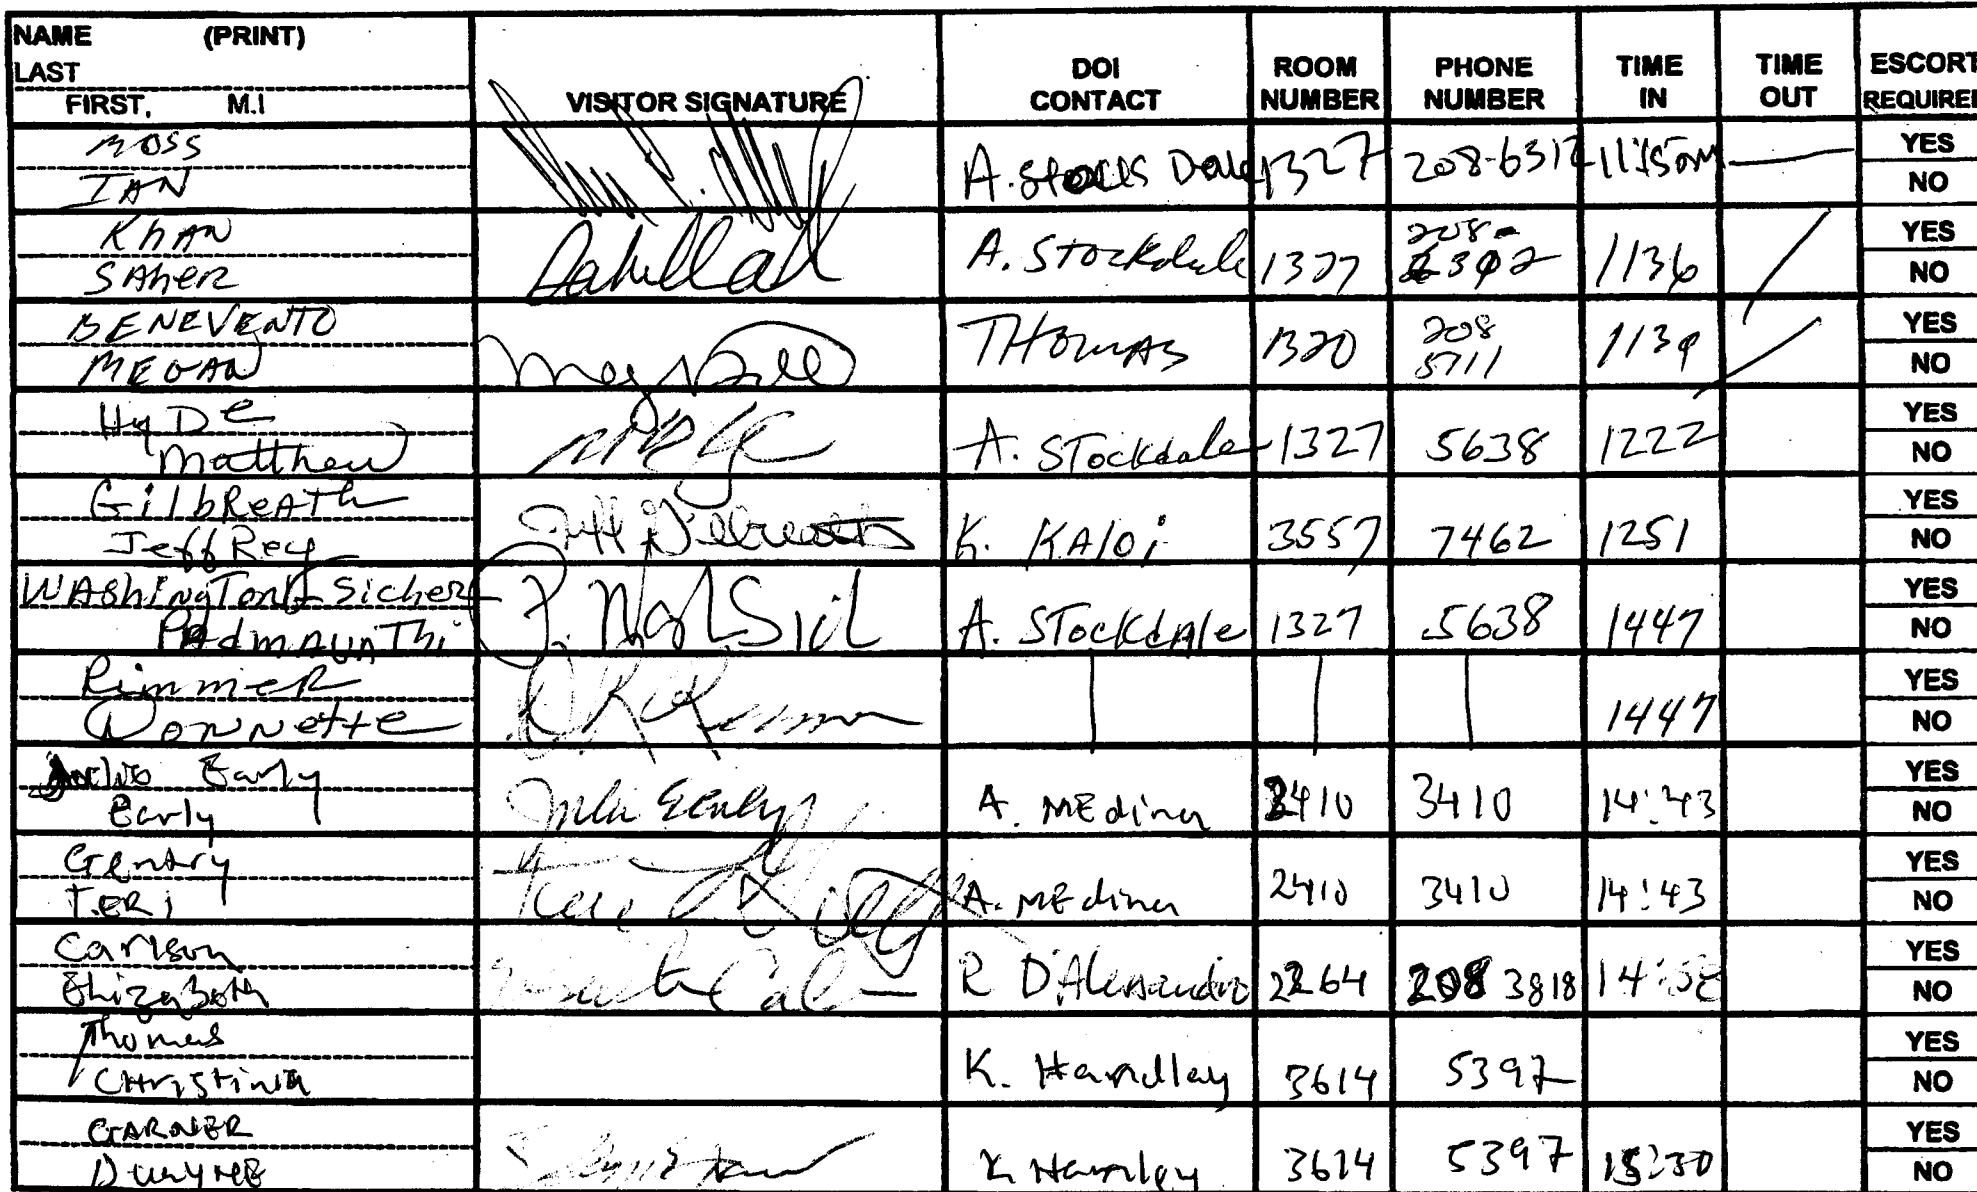 NAME (PRINT)
LAST
FIRST, M.I
VISITOR SIGNATURE
DOI CONTACT
ROOM NUMBER
PHONE NUMBER
TIME IN
TIME OUT
ESCORT REQUIRED
MOSS
IAN
1327 208-6312 YES
NO
KhAN
SAher
A. Stockdale 1327 208- 1136 YES
NO
BENEVENTO
MEGAN
THOMAS 1320 208 5711 1139 YES
NO
HyDe
Matthew
A. STockdale 1327 5638 1222 YES
NO
GilbReATh
JeffRey
Jeff Gilbreath K. KAloi 3557 7462 1251 YES
NO
WAShingTon Sicher
PAdmAvaThi
A. STockdAle 1327 5638 1447 YES
NO
Rimmer
DonNette
1447 YES
NO
Early
Early
Julia Early A. MEdina 2410 3410 14:43 YES
NO
Gentry
TERi
A. MEdina 2410 3410 14:43 YES
NO
Carlson
Elizabeth
R D'Alessandro 2264 208 3818 YES
NO
Thomas
CHristinia
K. Handley 3614 5397 YES
NO
GARNER
DwayNE
3614 5397 15:30 YES
NO